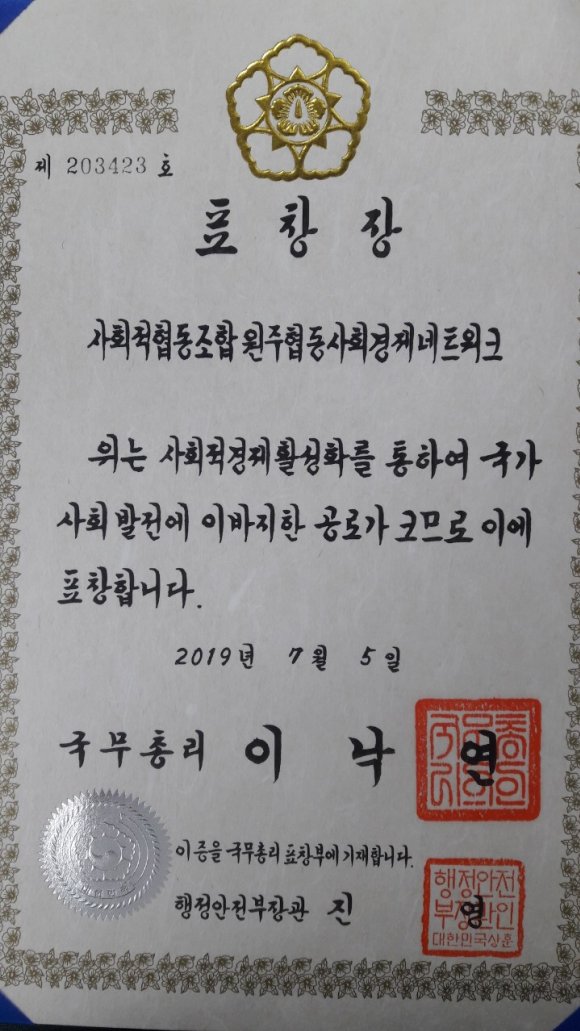 제 203423 호
표창장
사회적협동조합 원주협동사회경제네트워크
위는 사회적경제활성화를 통하여 국가
사회발전에 이바지한 공로가 크므로 이에
표창합니다.
2019년 7월 5일
국무총리 이낙연
이 증을 국무총리 표창부에 기재합니다.
행정안전부장관 진영
행정안전
부장관인
대한민국상훈